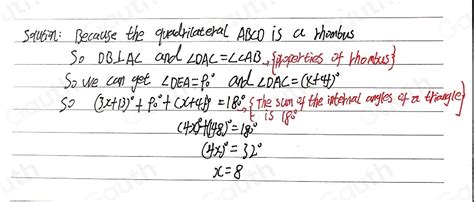 Solution: Because the quadrilateral ABCD is a rhombus
So DB⊥AC and ∠DAC=∠CAB, {properties of rhombus}
So we can get ∠DEA=90° and ∠DAC=(x+4)°
So (3x+13)°+90°+(x+45)°=180°, {The sum of the internal angles of a triangle is 180°
(4x)°+(148)°=180°
(4x)°=32°
x=8